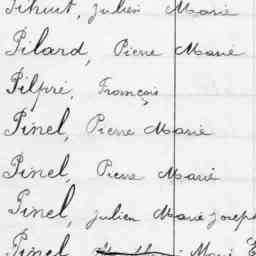 Pihuit, Julien Marie
Pilard, Pierre Marie
Pilpré, François
Pinel, Pierre Marie
Pinel, Pierre Marie
Pinel, Julien Marie Joseph
Pinel, Marie